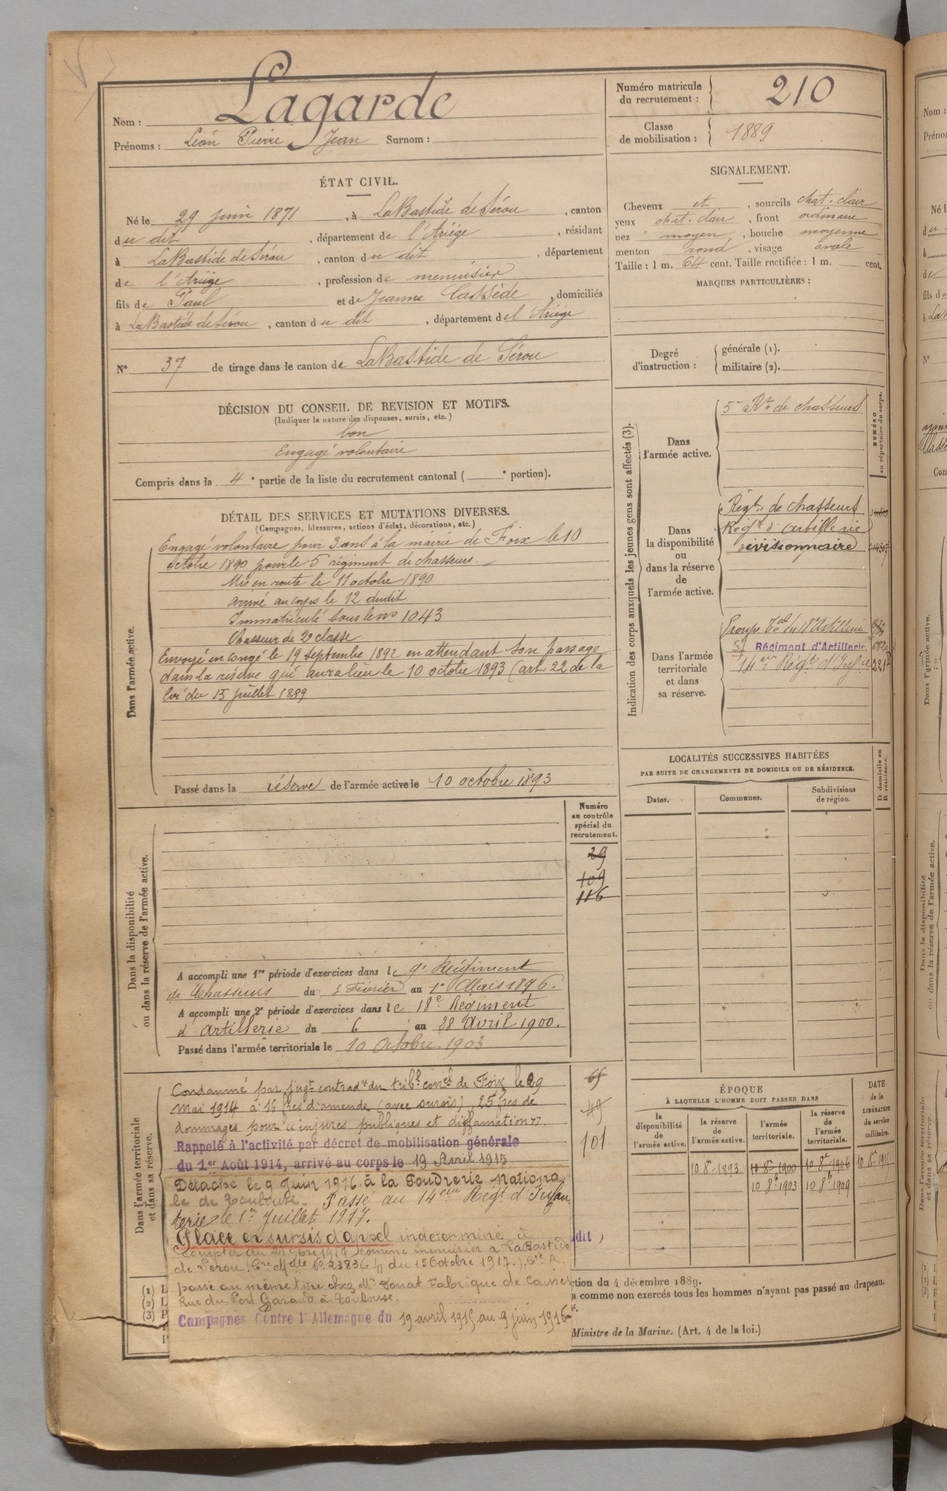 Nom : Lagarde
Prénoms : Léon Pierre Jean Surnom :
Numéro matricule du recrutement : 210
Classe de mobilisation : 1889
ÉTAT CIVIL.
Né le 29 juin 1871, à LaBastide de Sérou, canton
du dit, département de l'Ariège, résidant
à LaBastide de Sérou, canton du dit, département
de l'Ariège, profession de menuisier
fils de Paul et de Jeanne, domiciliés
à LaBastide de Sérou, canton du dit, département de l'Ariège
N° 37 de tirage dans le canton de LaBastide de Sérou
SIGNALEMENT.
Cheveux et, sourcils chat. clair
yeux chat. clair, front ordinaire
nez moyen, bouche moyenne
menton rond, visage ovale
Taille : 1 m. 64 cent. Taille rectifiée : 1 m. cent.
MARQUES PARTICULIÈRES :
Degré d'instruction : générale (1). militaire (2).
DÉCISION DU CONSEIL DE REVISION ET MOTIFS.
(Indiquer la nature des dispenses, sursis, etc.)
bon
Engagé volontaire
Compris dans la 4e partie de la liste du recrutement cantonal ( e portion).
DÉTAIL DES SERVICES ET MUTATIONS DIVERSES.
(Campagnes, blessures, actions d'éclat, décorations, etc.)
Dans l'armée active.
Engagé volontaire pour 3 ans à la mairie de Foix le 10
octobre 1890 pour le 5e régiment de chasseurs
Mis en route le 11 octobre 1890
arrivé au corps le 12 dudit
Immatriculé sous le no 1043
Chasseur de 2e classe
Envoyé en congé le 19 septembre 1892 en attendant son passage
dans la réserve qui aura lieu le 10 octobre 1893 (art. 22 de la
loi du 15 juillet 1889
Passé dans la réserve de l'armée active le 10 octobre 1893
Indication des corps auxquels les jeunes gens sont affectés (3).
NUMÉRO au répertoire du corps.
Dans l'armée active.
5e Rt de chasseurs
Dans la disponibilité ou dans la réserve de l'armée active.
Régt de chasseurs
Régt d'artillerie
divisionnaire
Dans l'armée territoriale et dans sa réserve.
Groupe
Régiment d'Artillerie
14e Régt d'Infie
LOCALITÉS SUCCESSIVES HABITÉES
PAR SUITE DE CHANGEMENTS DE DOMICILE OU DE RÉSIDENCE.
Dates.
Communes.
Subdivisions de région.
D domicile ou R résidence.
Numéro au contrôle spécial du recrutement.
29
109
116
Dans la disponibilité ou dans la réserve de l'armée active.
A accompli une 1re période d'exercices dans le 9e Régiment
de Chasseurs du 3 Février au 1er Mars 1896.
A accompli une 2e période d'exercices dans le 18e Régiment
d'Artillerie du 6 au 28 Avril 1900.
Passé dans l'armée territoriale le 10 Octobre 1903
Dans l'armée territoriale et dans sa réserve.
Condamné par jugt contradre du tribl corel de Foix le 29
mai 1914 à 16 frs d'amende (avec sursis) 25 frs de
dommages pour injures publiques et diffamation
Rappelé à l'activité par décret de mobilisation générale
du 1er Août 1914, arrivé au corps le 19 Avril 1915
Détaché le 9 Juin 1916 à la Poudrerie Nationa
le de Toulouse. Passé au 14eme Régt d'Infan
terie le 1er Juillet 1917.
Placé en sursis d'appel indéterminé à
comme menuisier à LaBastide
de Sérou du 15 Octobre 1917.
passé au même titre chez Mr Fabrique de
Rue du Port Garaud à Toulouse.
Campagnes Contre l'Allemagne du 19 avril 1915 au 9 juin 1916
65
49
101
ÉPOQUE
À LAQUELLE L'HOMME DOIT PASSER DANS
la disponibilité de l'armée active.
la réserve de l'armée active.
l'armée territoriale.
la réserve de l'armée territoriale.
DATE de la LIBÉRATION du service militaire.
10 8e 1893
10 8e 1903
10 8e 1909
(1)
(2)
(3)
ction du 4 décembre 1889.
a comme non exercés tous les hommes n'ayant pas passé au drapeau.
Ministre de la Marine. (Art. 4 de la loi.)